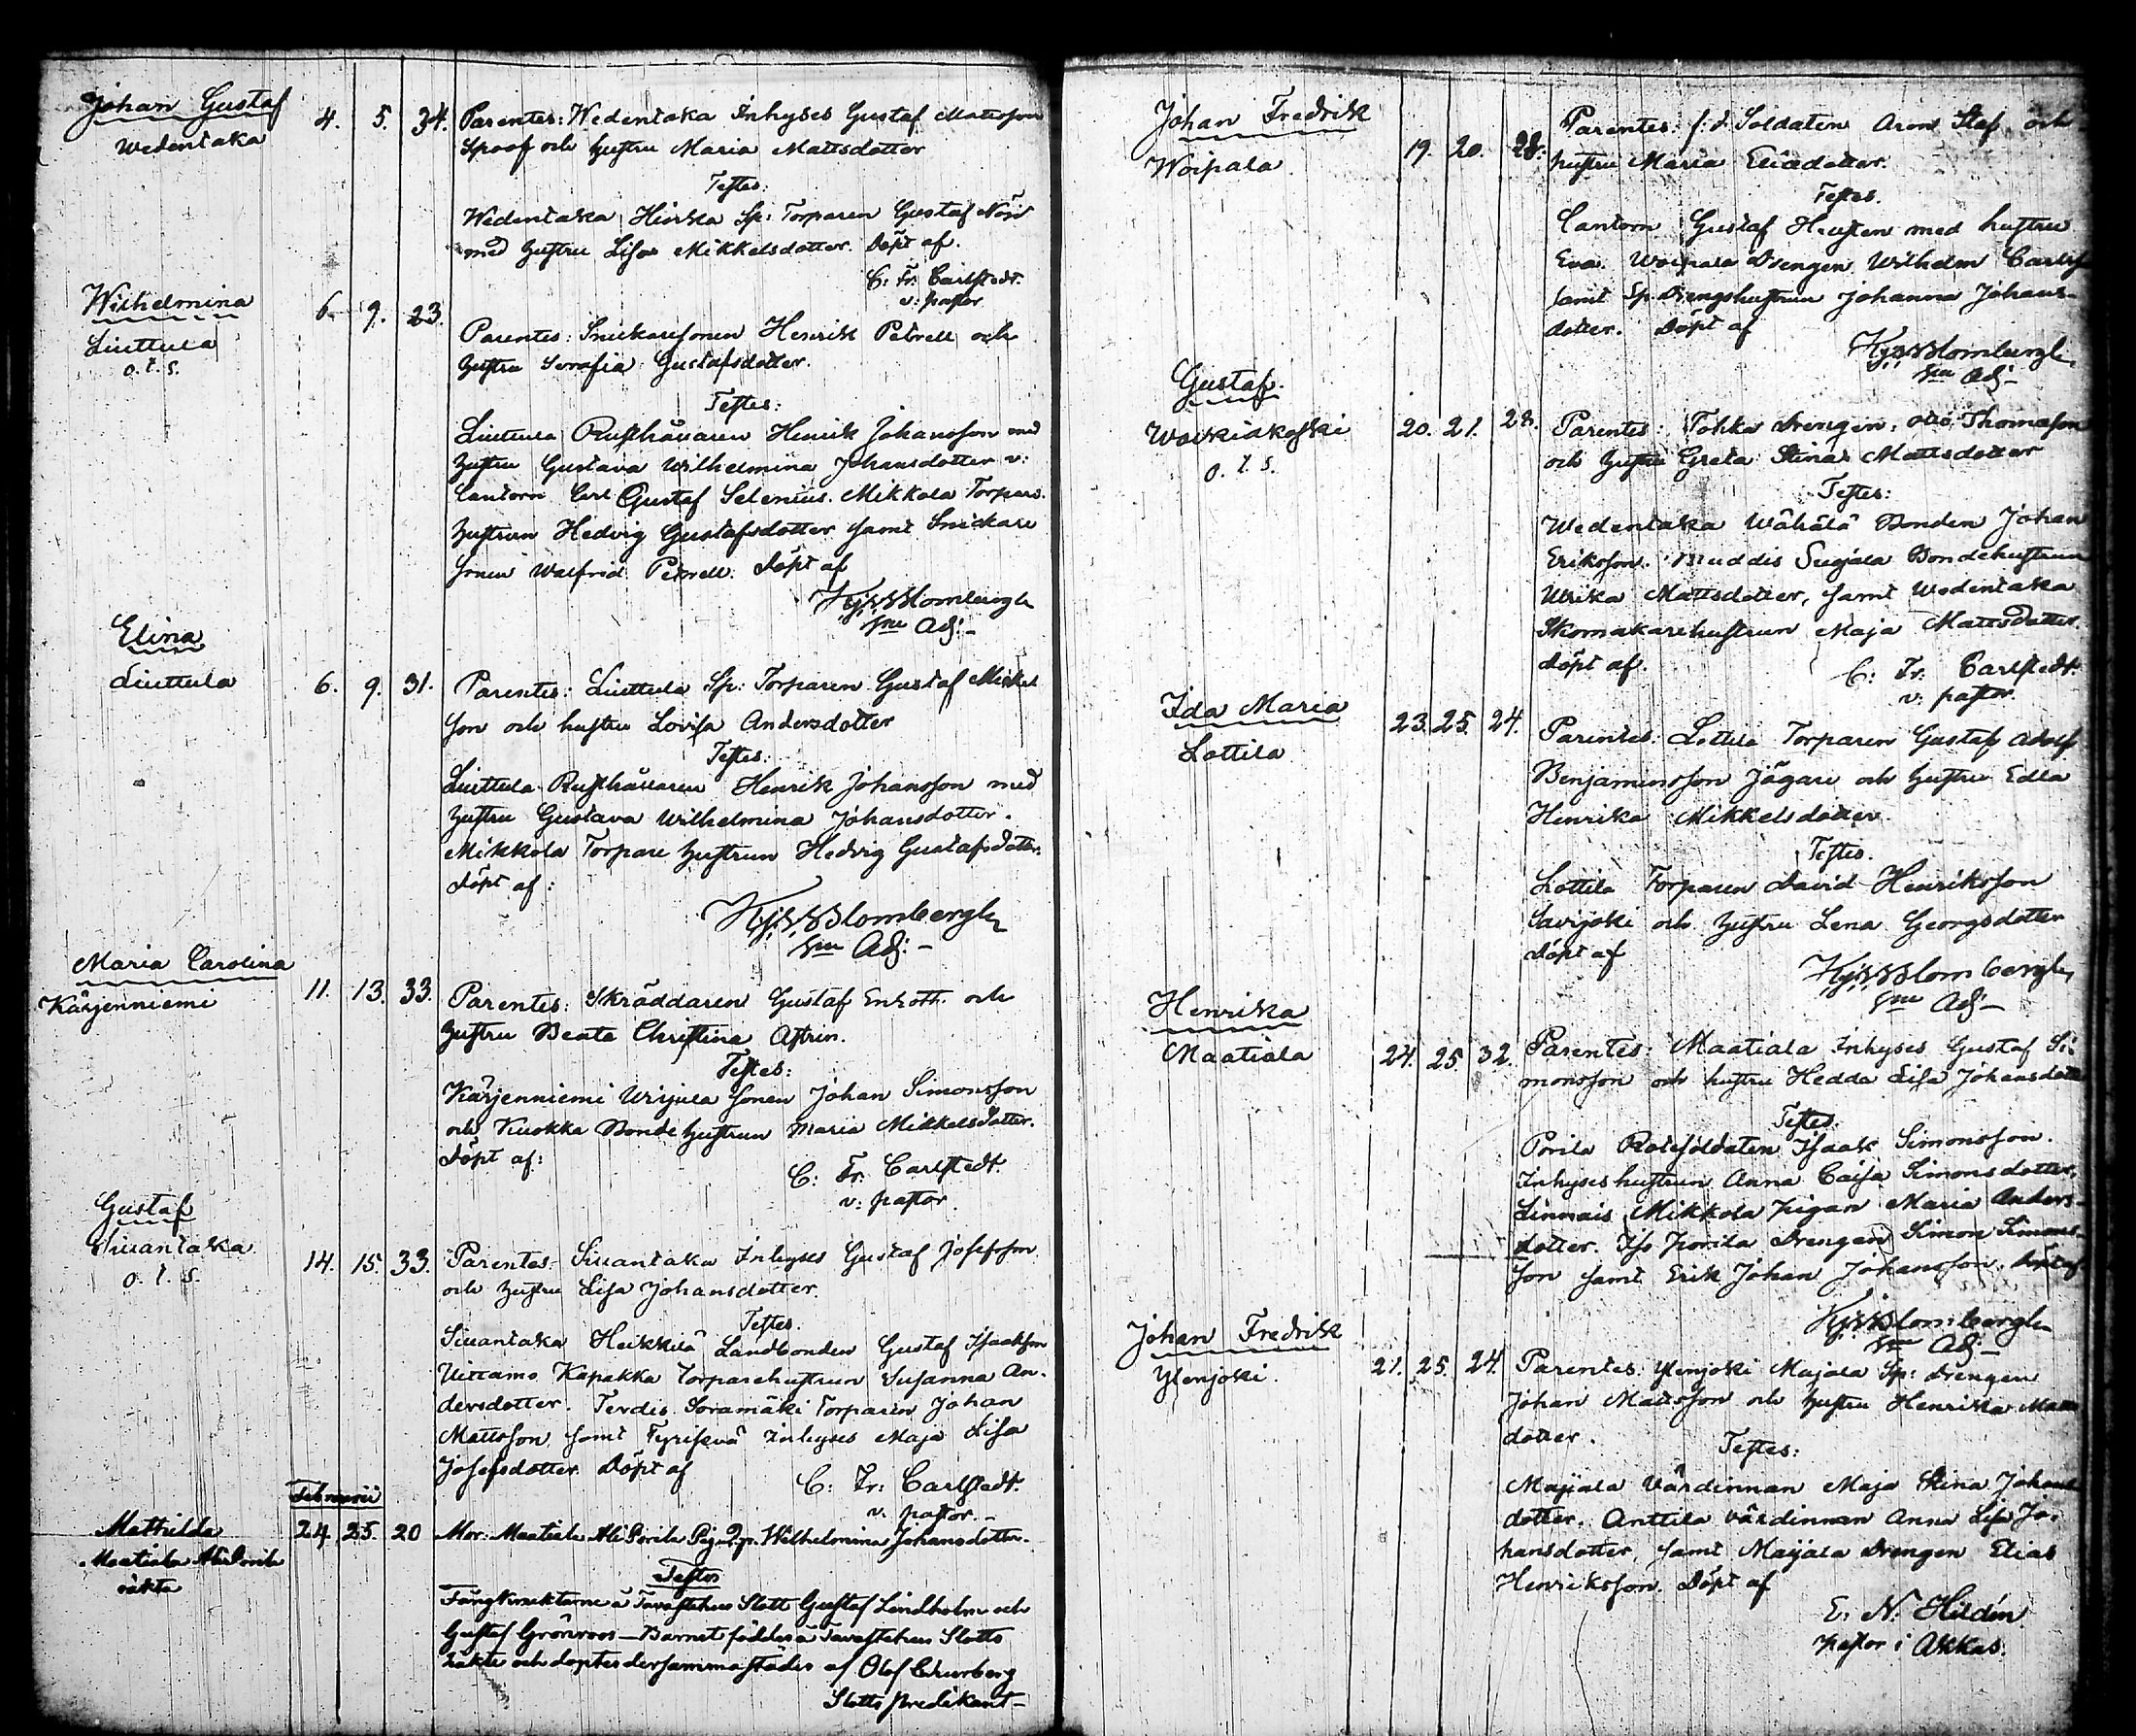 Johan Gustaf
Wedentaka
4. 5. 34. Parentes: Wedentaka Inhyses Gustaf Mattsson
Spoof och hustru Maria Mattsdotter
Testes:
Wedentaka Sp: Torparen Gustaf
med hustru Lisa Mikkelsdotter. Döpt af.
C: Fr: Carlstedt.
v: pastor
Wilhelmina
Liuttula
o. t. s.
6. 9. 23.
Parentes: Snickaresonen Henrik Petrell och
hustru Serafia Gustafsdotter.
Testes:
Liuttula Rusthållaren Henrik Johansson med
hustru Gustava Wilhelmina Johansdotter v:
Cantorn Carl Gustaf Selenius. Mikkola Torpare
hustrun Hedvig Gustafsdotter samt Snickare
sonen Walfrid Petrell. Döpt af
Blombergh
Adj:-
Elina
Liuttula
6. 9. 31. Parentes: Liuttula Sp: Torparen Gustaf Mickel
son och hustru Lovisa Andersdotter
Testes:
Liuttula Rusthållaren Henrik Johansson med
hustru Gustava Wilhelmina Johansdotter.
Mikkola Torpare hustrun Hedvig Gustafsdotter.
Döpt af:
Blombergh
Adj:-
Maria Carolina
Kärjenniemi
11. 13. 33. Parentes: Skräddaren Gustaf Enroth och
hustru Beata Christina Astrin.
Testes:
Kärjenniemi sonen Johan Simonsson
och Kuokka Bonde hustrun Maria Mikkelsdotter.
Döpt af:
C: Fr: Carlstedt
v: pastor.
Gustaf
Sivantaka
o. t. s.
14. 15. 33. Parentes: Sivantaka Inhyses Gustaf Josefsson
och hustru Lisa Johansdotter.
Testes.
Sivantaka Heikkilä Landbonden Gustaf Isaksson
Uittamo Kapakka Torparehustrun Susanna An-
dersdotter. Terdis Soramäki Torparen Johan
Mattsson samt Inhyses Maja Lisa
Josefsdotter. Döpt af
C: Fr: Carlstedt.
v: pastor.-
Februarii
Mathilda
Maatiala Ali Porila
oäkta
24. 25. 20 Mor: Maatiala Ali Porila Pig. Wilhelmina Johansdotter.
Testes
Fångknektarne å Tavastehus Slott Gustaf Lindholm och
Gustaf Grönroos - Barnet föddes å Tavastehus Slotts
häkte och döptes dersammastädes af Olof
Slotts predikant-
Johan Fredrik
Woipala
19. 20. 28. Parentes: f: d. Soldaten Aron Staf och
hustru Maria Eliadotter.
Testes.
Cantorn Gustaf med hustru
Eva. Woipala Drengen Wilhelm Carlss
samt Sp: Drengshustrun Johanna Johans-
dotter. Döpt af
Blombergh
Adj-
Gustaf.
Woikiakoski
o. t. s.
20. 21. 28. Parentes: Tohka Drengen, Otto Thomasson
och hustru Greta Stina Mattsdotter
Testes:
Wedentaka Wähälä Bonden Johan
Eriksson. Bonde hustrun
Ulrika Mattsdotter, samt Wedentaka
Skomakarehustrun Maja Mattsdotter.
Döpt af.
C: Fr: Carlstedt.
v: pastor.
Ida Maria
Lottila
23. 25. 24. Parentes: Lottila Torparen Gustaf Adolf
Benjaminsson Jägare och hustru Edla
Henrika Mikkelsdotter.
Testes.
Lottila Torparen David Henriksson
Savijoki och hustru Lena Georgsdotter
Döpt af
Blombergh
Adj-
Henrika
Maatiala
24. 25. 32. Parentes: Maatiala Inhyses Gustaf Si-
monsson och hustru Hedda Lisa Johansdott
Testes.
Porila Rotesoldaten Isaak Simonsson.
Inhyseshustrun Anna Caisa Simonsdotter.
Linnais Mikkola pigan Maria Anders-
dotter. Iso Porila Drengen Simon Simons-
son samt Erik Johan Johansson. Döpt af
Blombergh
Adj-
Johan Fredrik
Ylenjoki.
21. 25. 24. Parentes: Ylenjoki Majala Sp: Drengen
Johan Mattsson och hustru Henrika Matts
dotter.
Testes:
Maijala Värdinnan Maja Stina Johans
dotter. Anttila värdinnan Anna Lisa Jo-
hansdotter, samt Maijala Drengen Elias
Henriksson. Döpt af
E. N. Hildén.
pastor i Akkas.